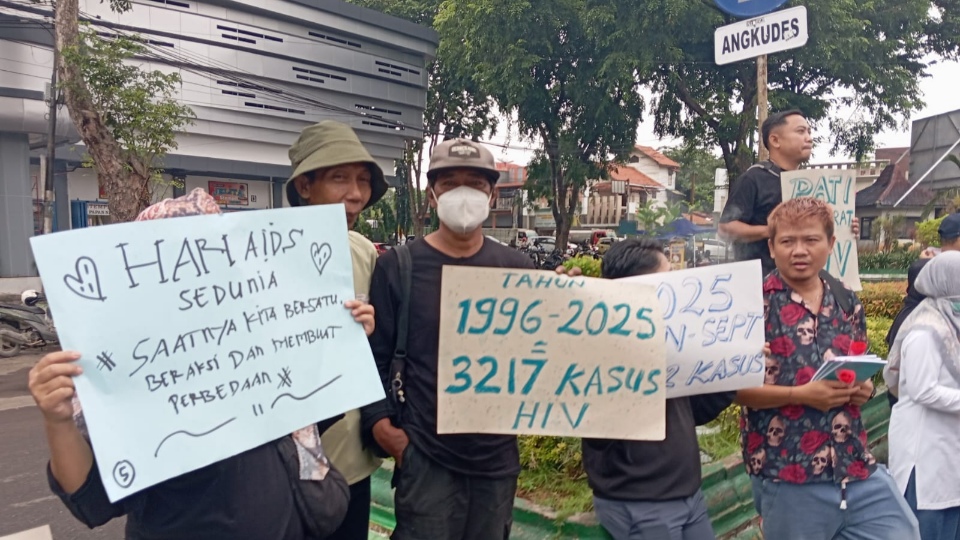 ANGKUDES
HARI AIDS
SEDUNIA
* SAATNYA KITA BERSATU,
BERAKSI DAN MEMBUAT
PERBEDAAN *
5
TAHUN
1996-2025
=
3217 KASUS
HIV
2025
N-SEPT
2 KASUS
PATI
RAT